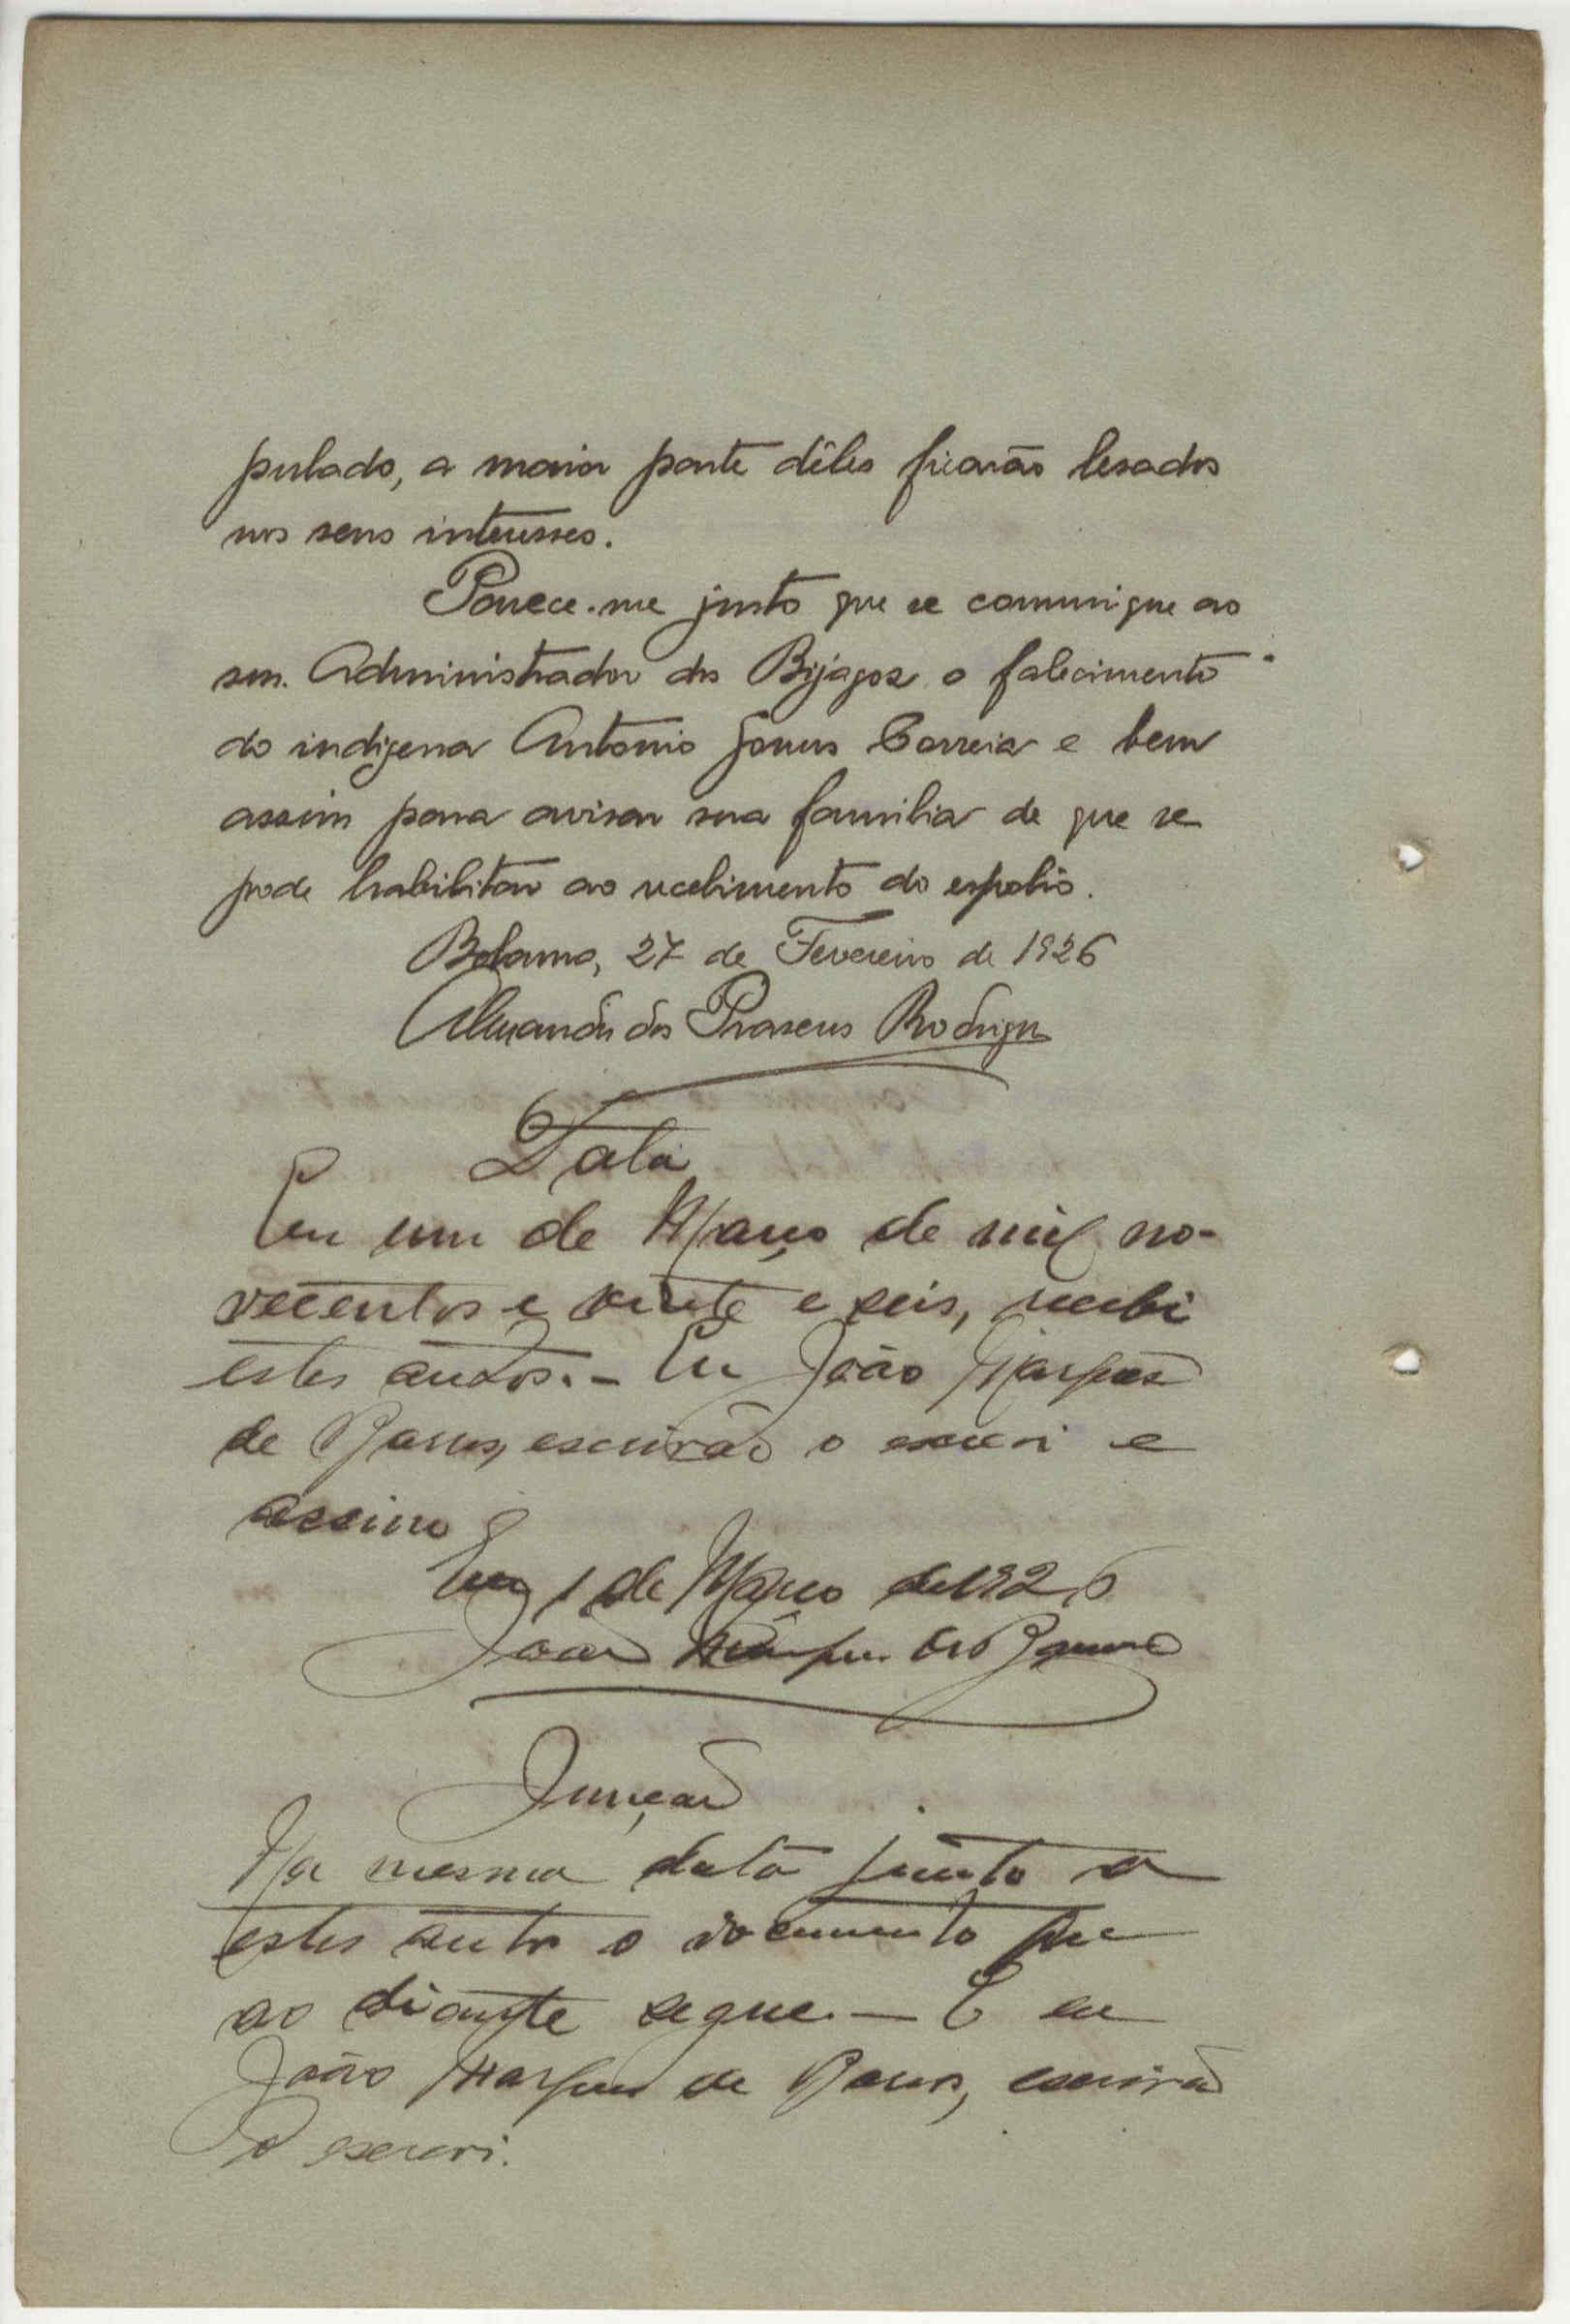 pulado, a maior parte dêles ficarão lesados
nos seus interesses.
Parece-me justo que se comunique ao
snr. Administrador dos Bijagoz o falecimento
do indigena Antonio Gomes Correia e bem
assim para avisar sua familia de que se
pode habilitar ao recebimento do espolio.
Bolama, 27 de Fevereiro de 1926
Alexandre dos Prazeres Rodrigues
Data
Em um de Março de mil no-
vecentos e vinte e seis, recebi
estes autos. - Eu João Marques
de Barros, escrivão o escrevi e
assino
Em 1 de Março de 1926
João Marques de Barros
Junção
Na mesma data junto a
estes autos o documento que
ao diante segue. — E eu
João Marques de Barros, escrivão
o escrevi.